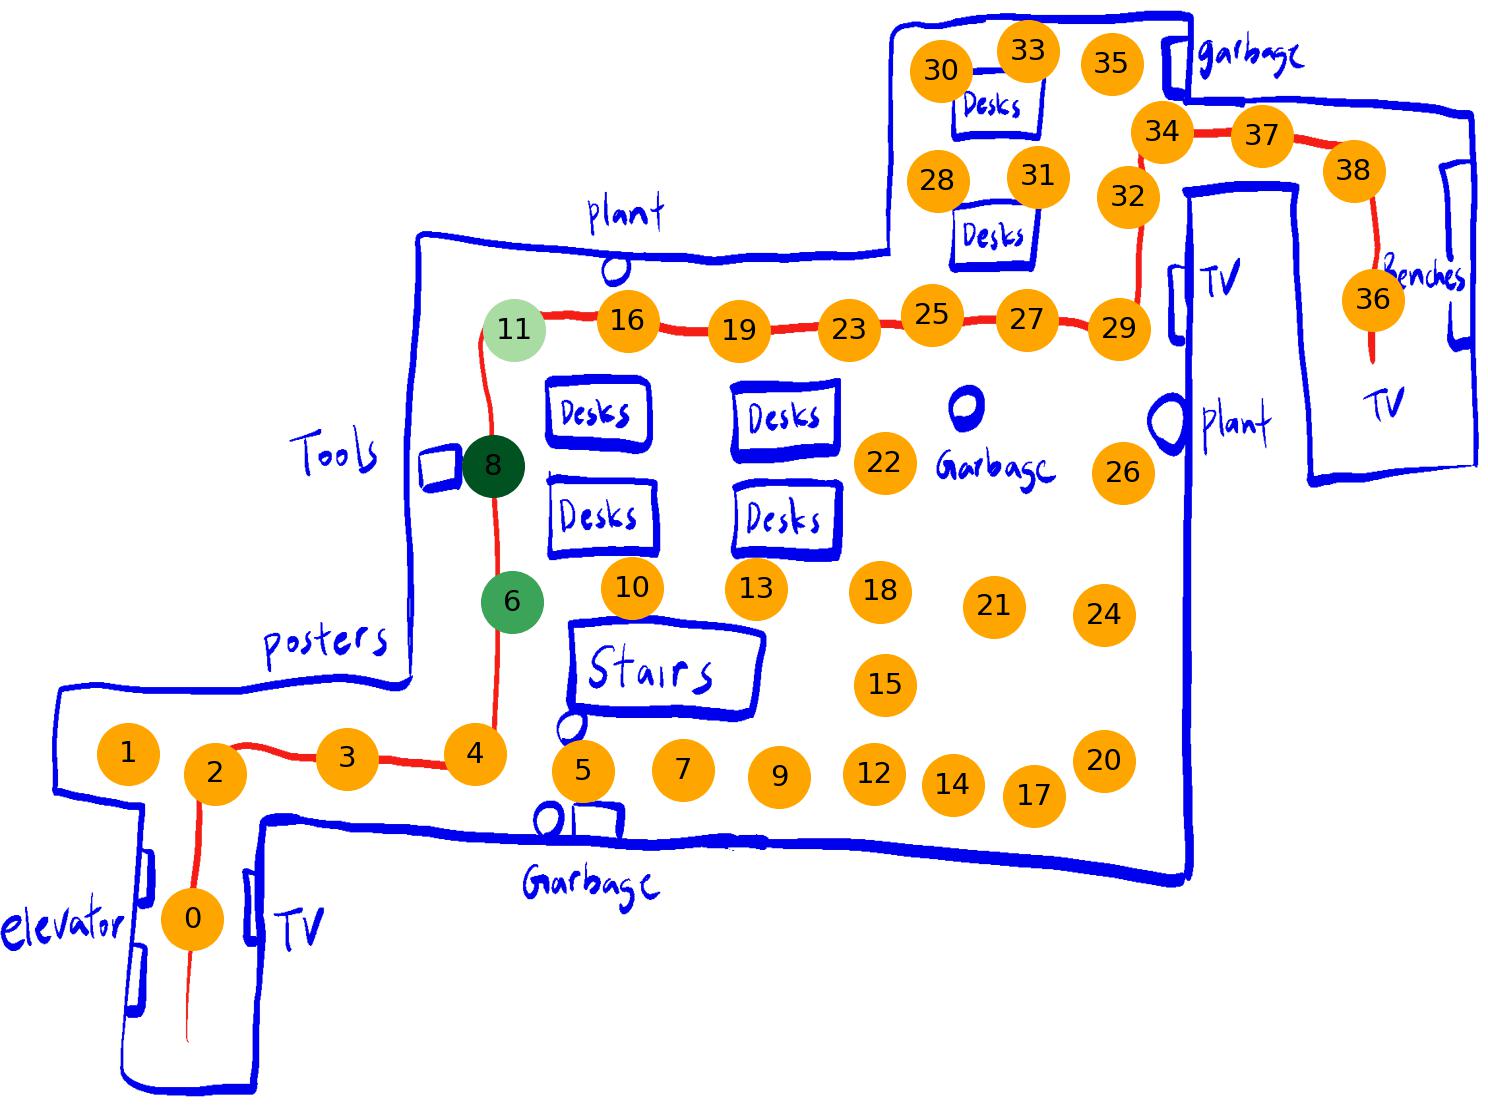 33
30
35
garbage
Desks
34
37
38
28
31
32
plant
Desks
TV
Benches
36
11
16
19
23
25
27
29
TV
Desks
Desks
plant
Tools
8
22
Garbage
26
Desks
Desks
6
10
13
18
21
24
posters
Stairs
15
1
2
3
4
5
7
9
12
14
17
20
Garbage
elevator
0
TV